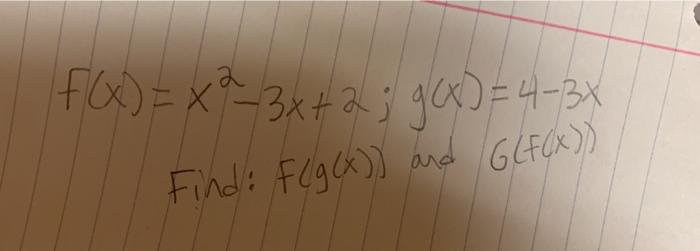 f(x) = x²-3x+2; g(x) = 4-3x
Find: F(g(x)) and G(f(x))